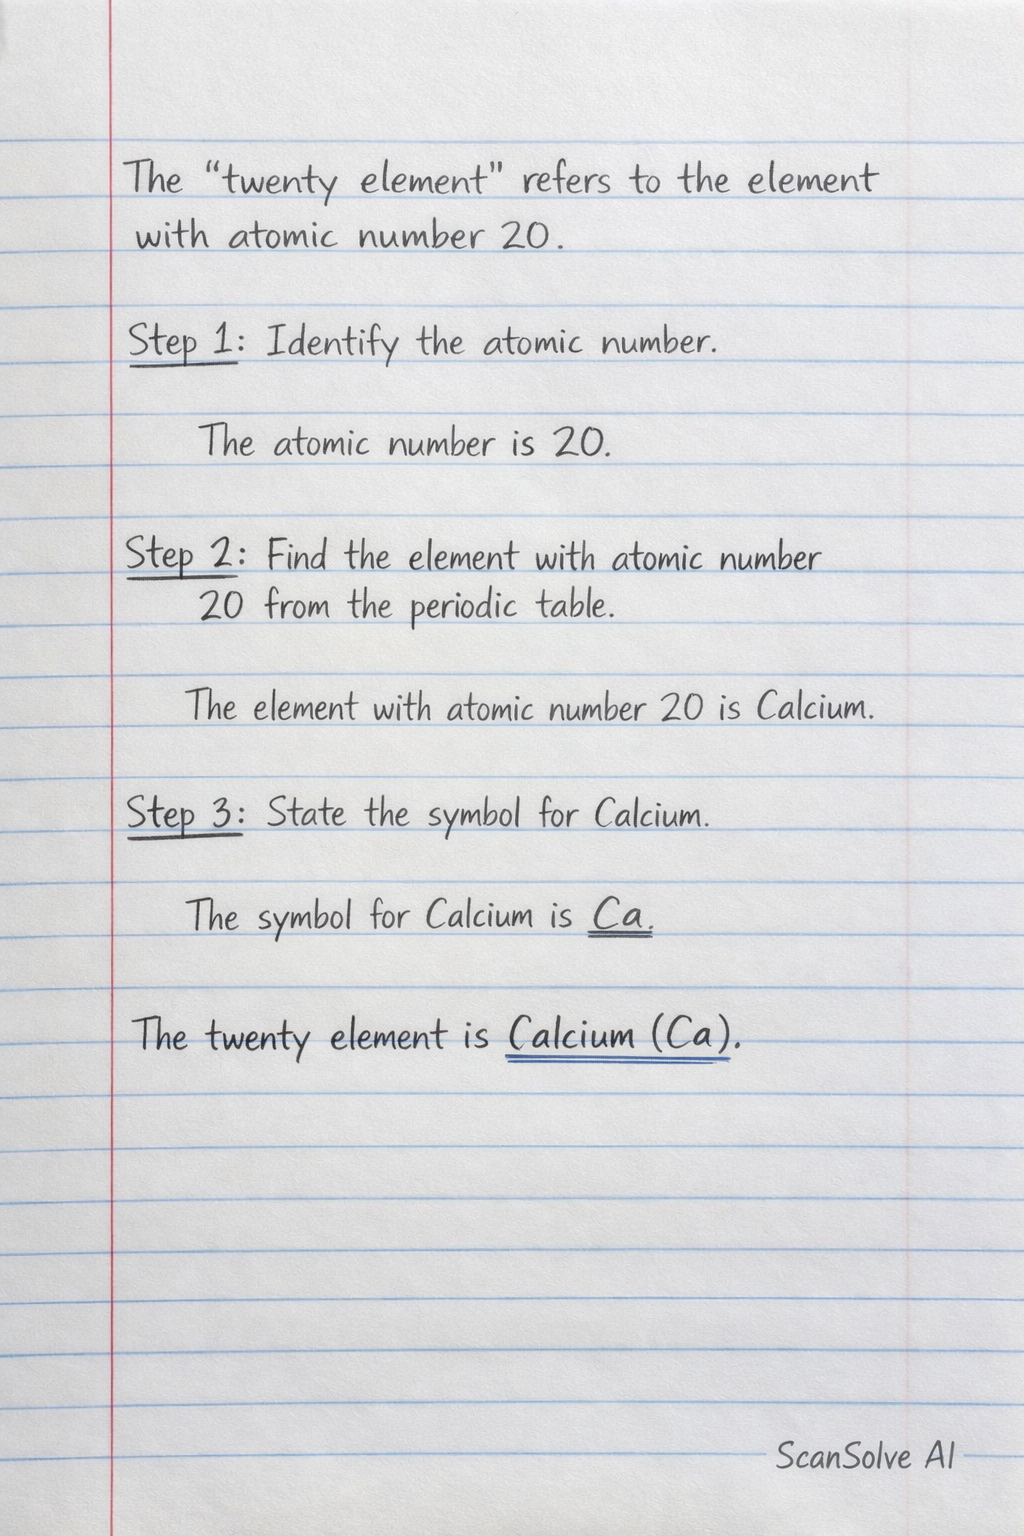 The “twenty element” refers to the element
with atomic number 20.
Step 1: Identify the atomic number.
The atomic number is 20.
Step 2: Find the element with atomic number
20 from the periodic table.
The element with atomic number 20 is Calcium.
Step 3: State the symbol for Calcium.
The symbol for Calcium is Ca.
The twenty element is Calcium (Ca).
ScanSolve AI